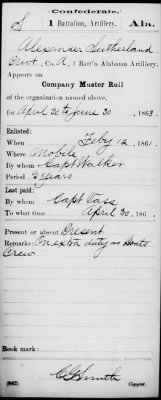 Confederate.
S 1 Battalion, Artillery. Ala.
Alexander Sutherland
Pvt, Co. A, 1 Batt'n Alabama Artillery.
Appears on
Company Muster Roll
of the organization named above,
for April 30 to June 30, 1863.
Enlisted:
When Feby 12, 1861.
Where Mobile
By whom Capt Walker
Period 3 years
Last paid:
By whom Capt
To what time April 30, 186 .
Present or absent Present
Remarks: On extra duty as Boats
Crew
Book mark:
(642) Copyist.